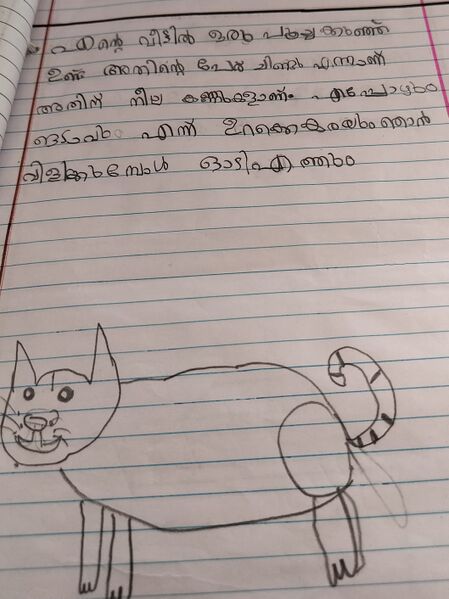 എൻ്റെ വീട്ടിൽ ഒരു പൂച്ച കുഞ്ഞ്
ഉണ്ട് അതിൻ്റെ പേര് ചിണ്ടു എന്നാണ്
അതിന് നീല കണ്ണുകളാണ് എപ്പോഴും
എന്ന് ഉറക്കെകരയും ഞാൻ
വിളിക്കുമ്പോൾ ഓടിഎത്തും